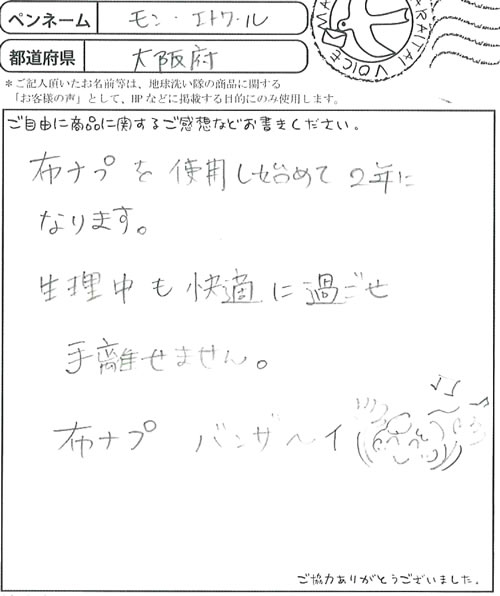 ペンネーム モン・エトワール
都道府県 大阪府
＊ご記入頂いたお名前等は、地球洗い隊の商品に関する
「お客様の声」として、HPなどに掲載する目的にのみ使用します。
ご自由に商品に関するご感想などお書きください。
布ナプを使用し始めて2年に
なります。
生理中も快適に過ごせ
手離せません。
布ナプ バンザ〜イ
ご協力ありがとうございました。